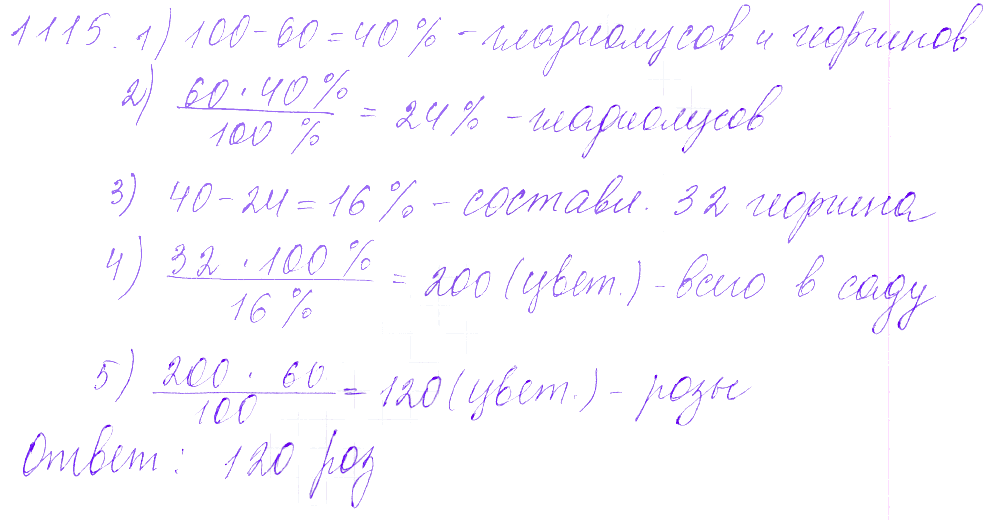 1115. 1) 100 - 60 = 40 % - гладиолусов и георгинов
2) 60 · 40 % / 100 % = 24 % - гладиолусов
3) 40 - 24 = 16 % - составл. 32 георгина
4) 32 · 100 % / 16 % = 200 (цвет.) - всего в саду
5) 200 · 60 / 100 = 120 (цвет.) - розы
Ответ: 120 роз